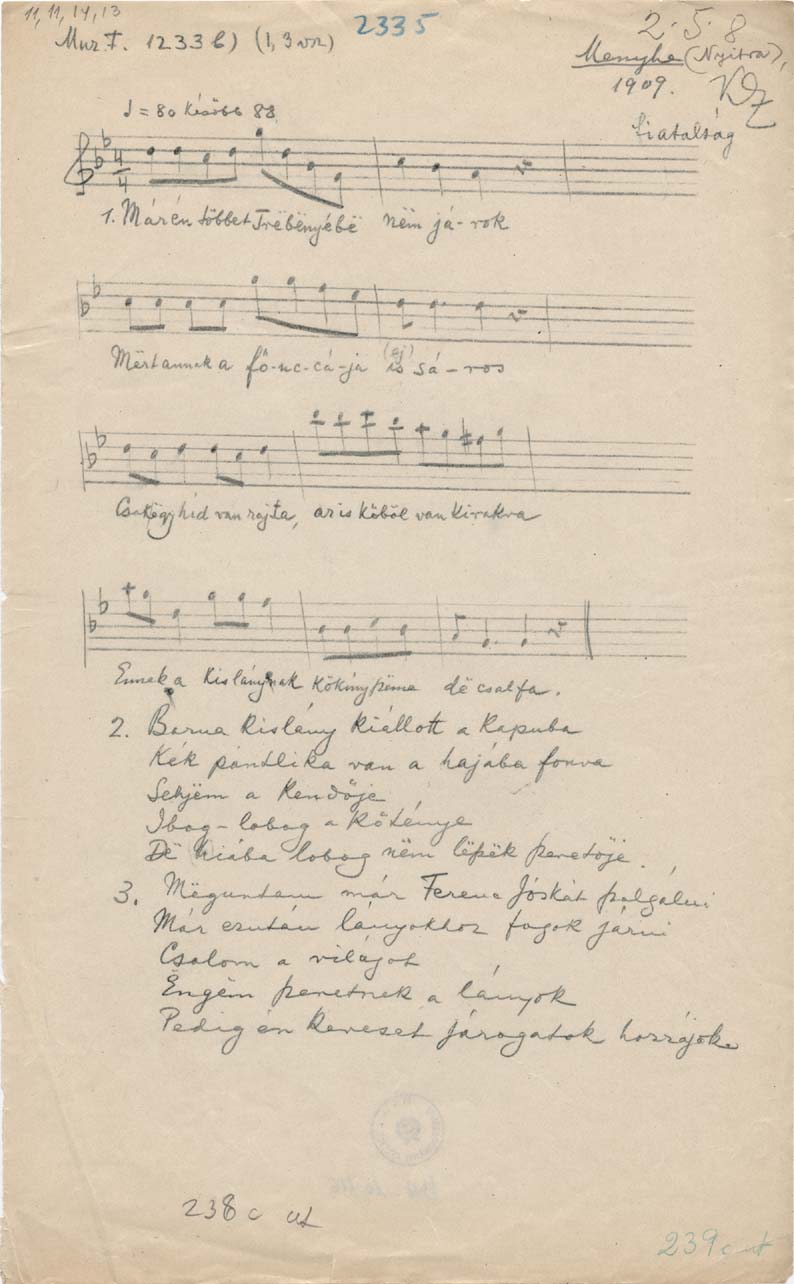 11, 11, 14, 13
2335
2·5·8
Muz. F. 1233 b) (1, 3 vsz)
Menyhe (Nyitra),
1909. KZ
♩ = 80 később 88
fiatalság
4/4
1. Már én többet Trëbënyébë nëm já-rok
Mërt annak a fő-uc-cá-ja (ej) is sá-ros
Csak ëgy híd van rajta, az is kőből van kirakva
Ennek a kislánynak kökény szëme dë csalfa.
2. Barna kislány kiállott a kapuba
Kék pántlika van a hajába fonva
Sehjëm a kendője
Ibog-lobog a köténye
Dë hiába lobog nëm lëszëk szeretője.
3. Mëguntam már Ferenc Jóskát szolgálni
Már ezután lányokhoz fogok járni
Csalom a világot
Ëngëm szeretnek a lányok
Pedig én keveset járogatok hozzájok
238 c ut
239 c ut